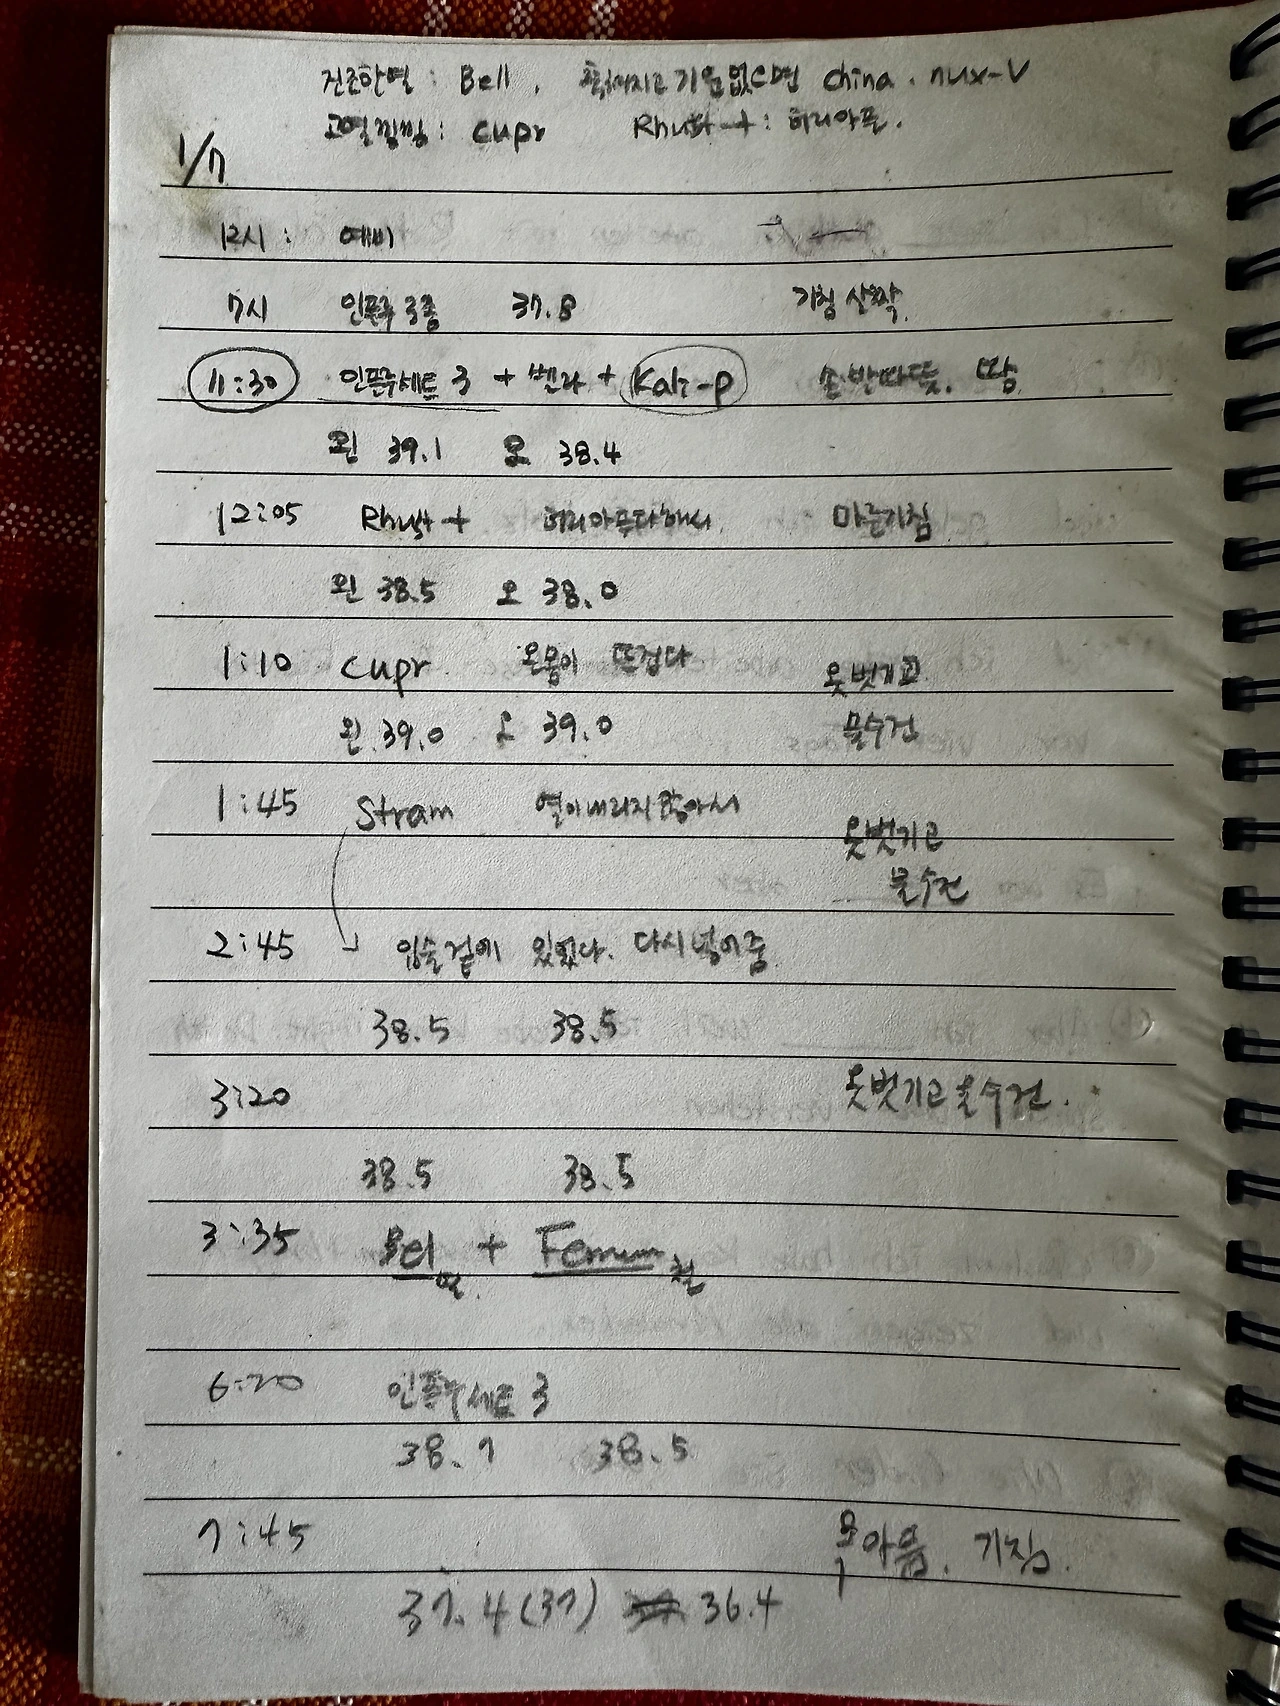 건조한열 : Bell. 축 쳐지고 기운없으면 china. nux-V
고열찜찜 : cupr Rhust-t : 허리아픔.
1/7
12시 : 예비
7시 인플루 3종 37.8 기침 살짝.
11:30 인플루세트 3 + 벨라 + Kali-p 손발따뜻. 땀
왼 39.1 오 38.4
12:05 Rhust-t 허리아프다해서. 마른기침
왼 38.5 오 38.0
1:10 cupr. 온몸이 뜨겁다 옷벗기고
왼.39.0 오 39.0 물수건
1:45 Stram 열이내리지않아서 옷벗기고
물수건
2:45 입술겉에 있었다. 다시넣어줌
38.5 38.5
3:20 옷벗기고물수건.
38.5 38.5
3:35 Bel 열. + Ferrum 철
6:20 인플루세트 3
38.7 38.5
7:45 목아픔. 기침.
37.4(37) 36.4